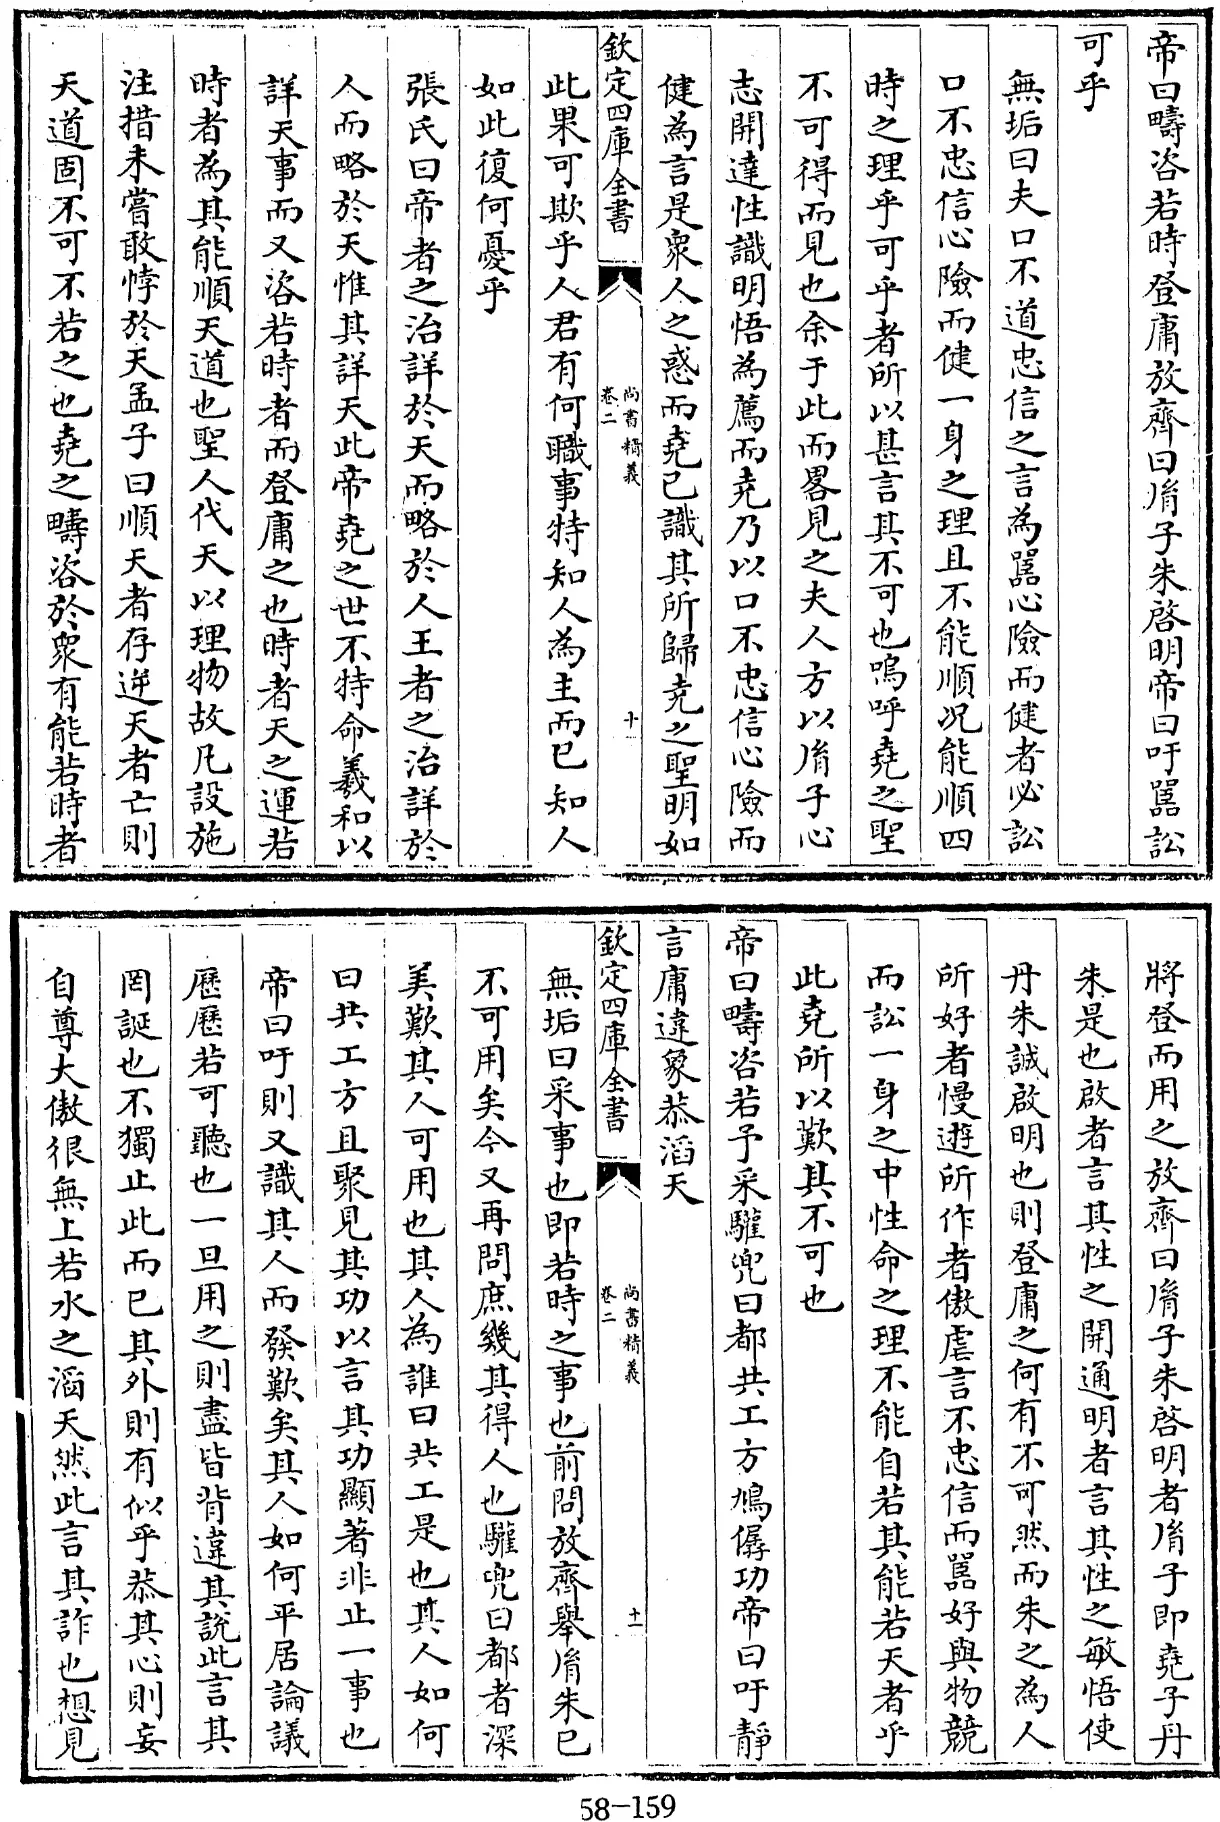 帝曰疇咨若時登庸放齊曰胤子朱啓明帝曰吁嚚訟
可乎
無垢曰夫口不道忠信之言為嚚心險而健者必訟
口不忠信心險而健一身之理且不能順况能順四
時之理乎可乎者所以甚言其不可也嗚呼堯之聖
不可得而見也余于此而畧見之夫人方以胤子心
志開達性識明悟為薦而堯乃以口不忠信心險而
健為言是衆人之惑而堯已識其所歸堯之聖明如
欽定四庫全書
尚書精義
卷二
十
此果可欺乎人君有何職事特知人為主而已知人
如此復何憂乎
張氏曰帝者之治詳於天而略於人王者之治詳於
人而略於天惟其詳天此帝堯之世不特命羲和以
詳天事而又咨若時者而登庸之也時者天之運若
時者為其能順天道也聖人代天以理物故凡設施
注措未嘗敢悖於天孟子曰順天者存逆天者亡則
天道固不可不若之也堯之疇咨於衆有能若時者
將登而用之放齊曰胤子朱啓明者胤子即堯子丹
朱是也啟者言其性之開通明者言其性之敏悟使
丹朱誠啟明也則登庸之何有不可然而朱之為人
所好者慢遊所作者傲虐言不忠信而嚚好與物競
而訟一身之中性命之理不能自若其能若天者乎
此堯所以歎其不可也
帝曰疇咨若予采驩兜曰都共工方鳩僝功帝曰吁靜
言庸違象恭滔天
欽定四庫全書
尚書精義
卷二
十一
無垢曰采事也即若時之事也前問放齊舉胤朱已
不可用矣今又再問庶幾其得人也驩兜曰都者深
美歎其人可用也其人為誰曰共工是也其人如何
曰共工方且聚見其功以言其功顯著非止一事也
帝曰吁則又識其人而發歎矣其人如何平居論議
歷歷若可聽也一旦用之則盡皆背違其說此言其
罔誕也不獨止此而已其外則有似乎恭其心則妄
自尊大傲很無上若水之滔天然此言其詐也想見
58-159